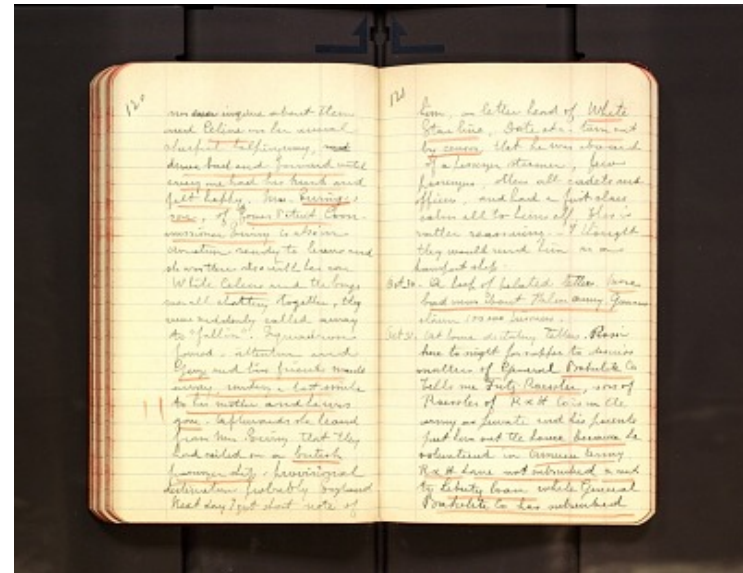 120
no one inquire about them
and Celine in her usual
cheerful talking way,
drives back and forward until
every one had his trunk and
felt happy. Mrs. Ewing,
of Power District Com-
missioner Ewing is also in
ready to leave and
she was there also with her son
While Celine and the boys
were all chatting together, they
were suddenly called away
to "fall in".
formed - attention and
George and his friends made
away under a last smile
to his mother and he was
gone. Afterwards she heard
from Mrs. Ewing that they
had sailed on a British
passenger ship, provisional
destination probably England
Next day I got short note of
121
him, on letter head of White
Star line, Date etc. torn out
by censor that he was aboard
of a passenger steamer, few
passengers, others all cadets and
officers, and had a first class
cabin all to himself. This is
rather reassuring. - I thought
they would send him on some
transport ship.
Oct 30. - A heap of belated letters. More
bad news about Italian army Germans
claim 100000 prisoners.
Oct 31. At home dictating letters. Rossi
here to night for supper to discuss
matters of General Bakelite Co
Tells me Fritz Roessler, son of
Roessler of R & H Co is in the
army as private and his parents
put him out the house because he
volunteered in American Army
R & H have not subscribed a cent
to Liberty Loan while General
Bakelite Co has subscribed